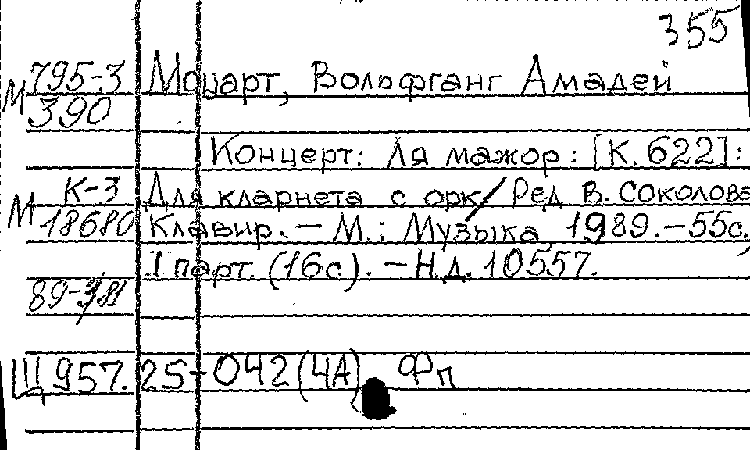 355
М 795-3 Моцарт, Вольфганг Амадей
390
Концерт: Ля мажор: [К. 622]:
К-3 Для кларнета с орк/ Ред В. Соколова
М 18680 Клавир. – М.: Музыка, 1989. – 55с.,
1 парт. (16с). – Н.д. 10557.
89-
Щ 957.25-042(4А) Фп